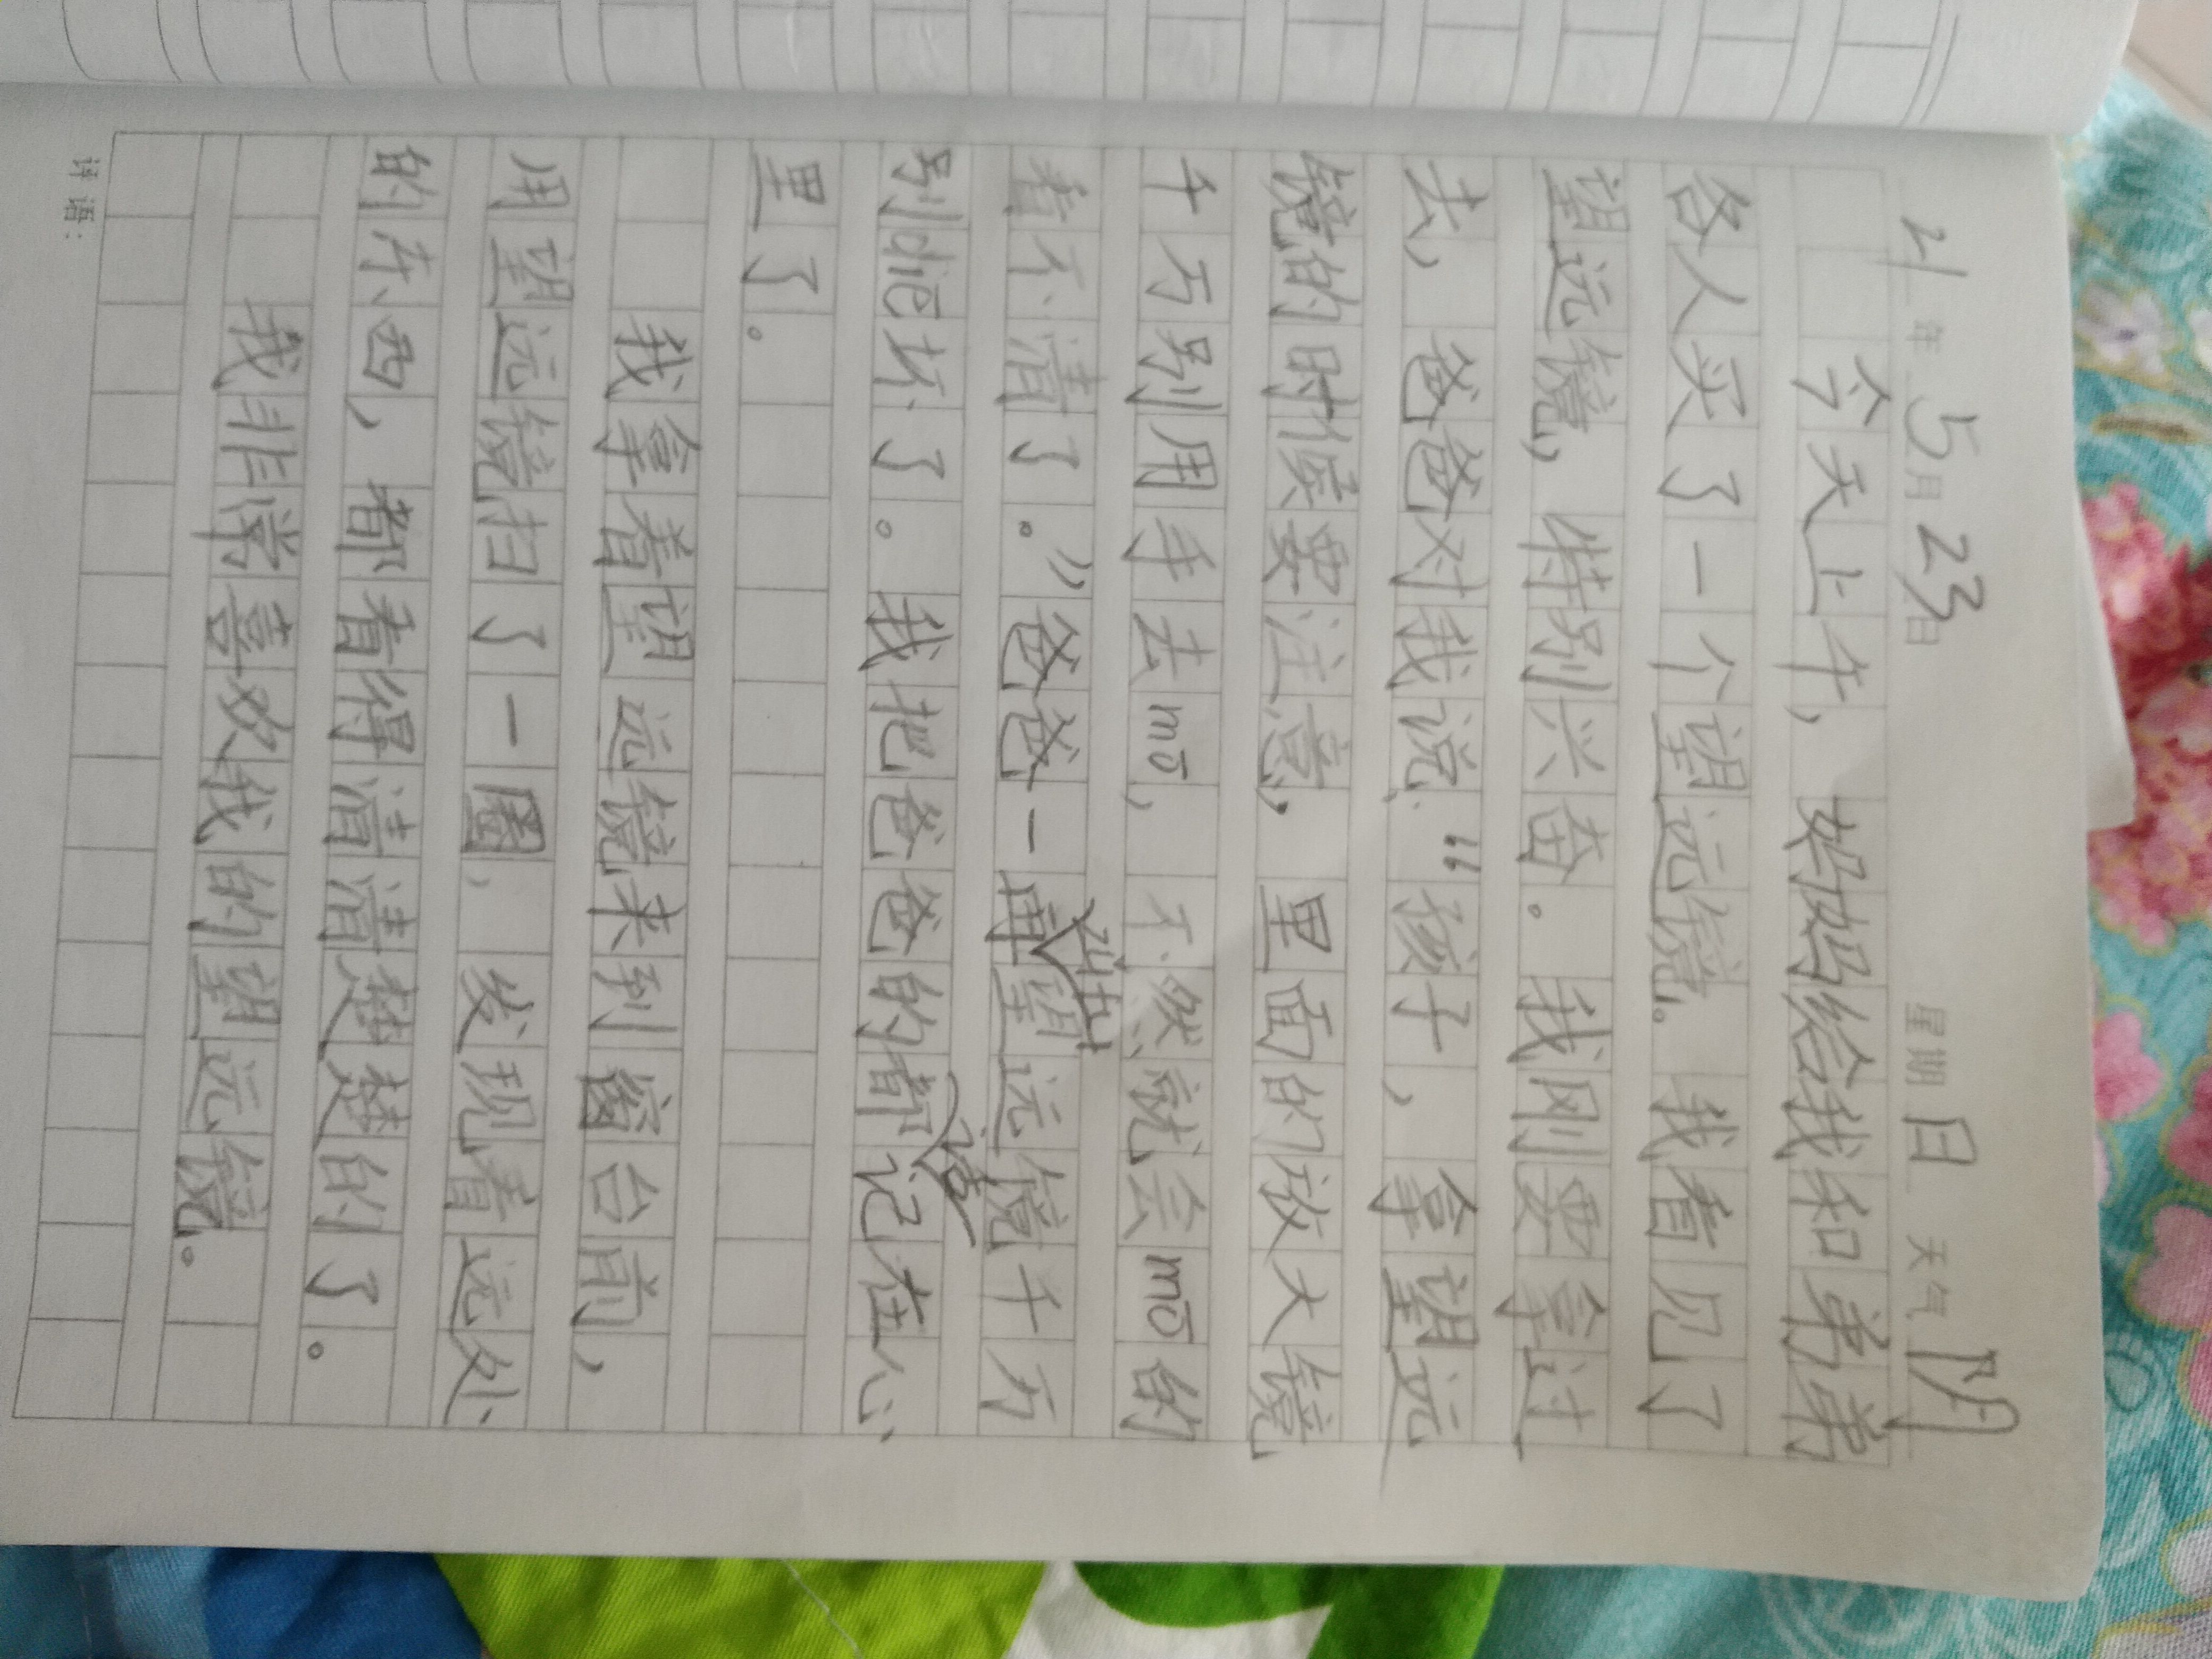 21年5月23日 星期日 天气阴
今天上午，妈妈给我和弟弟
各人买了一个望远镜。我看见了
望远镜，特别兴奋。我刚要拿过
去，爸爸对我说：“孩子，拿望远
镜的时候要注意，里面的放大镜
千万别用手去mō，不然就会mō的
看不清了。”爸爸一再说望远镜千万
别diē坏了。我把爸爸的都记在心
里了。
我拿着望远镜来到窗台前，
用望远镜扫了一圈，发现看远处
的东西，都看得清清楚楚的了。
我非常喜欢我的望远镜。
评语：